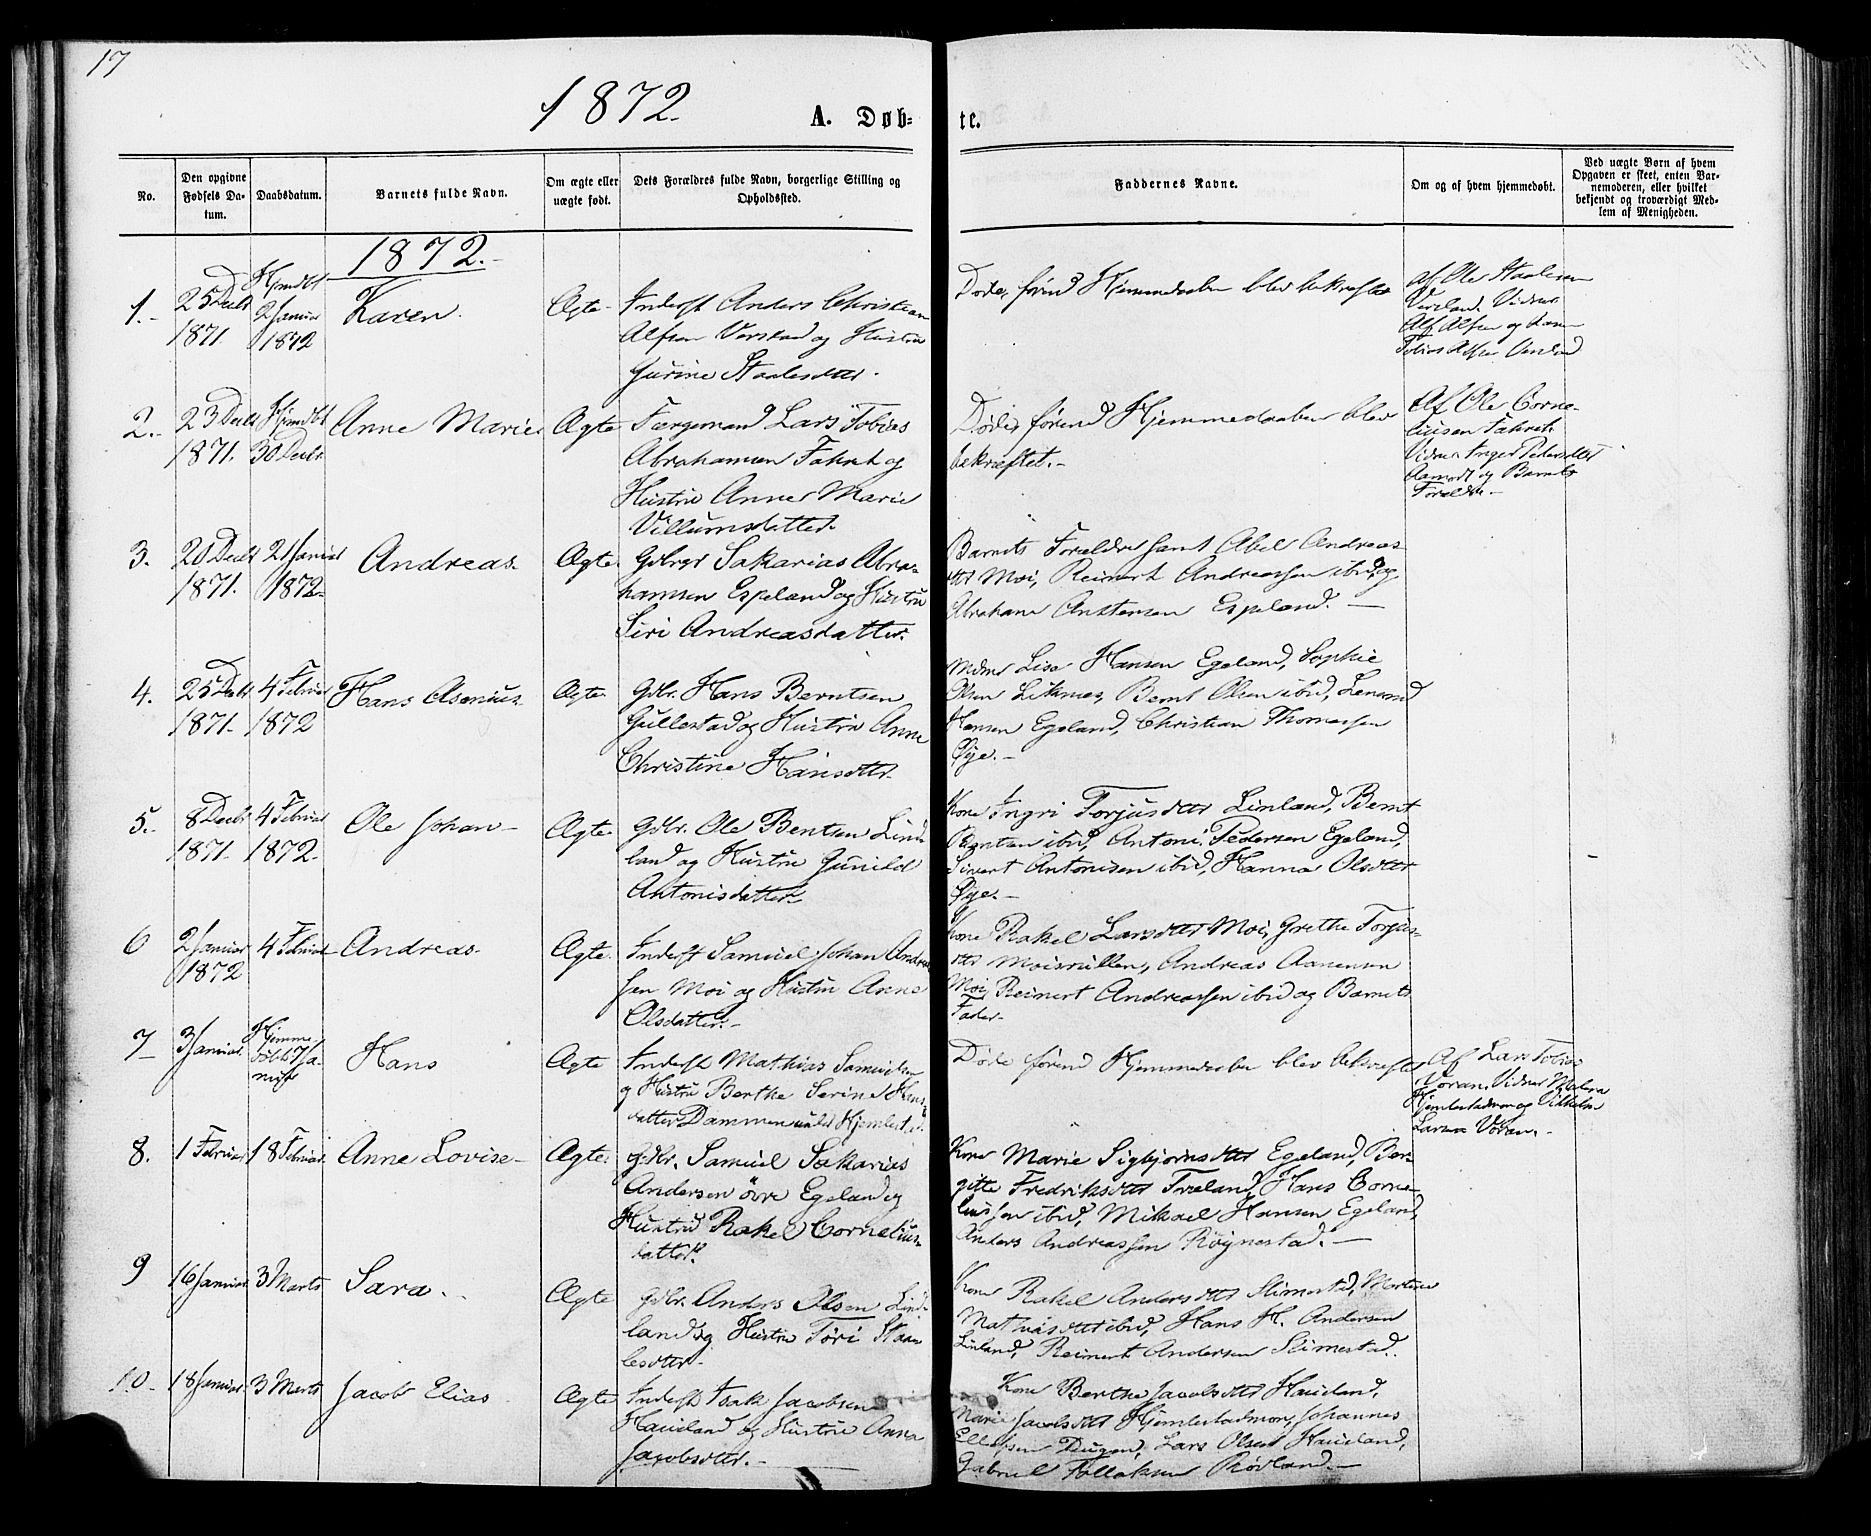 17
1872.
A. Døb-
te.
No.
Den opgivne
Fødsels Da-
tum.
Daabsdatum.
Barnets fulde Navn.
Om ægte eller
uægte født.
Dets Forældres fulde Navn, borgerlige Stilling og
Opholdssted.
Faddernes Navne.
Om og af hvem hjemmedøbt.
Ved uægte Børn af hvem
Opgaven er skeet, enten Bar-
nemoderen, eller hvilket
bekjendt og troværdigt Med-
lem af Menigheden.
1872.
1.
25 Decbr
1871.
Hjmdbt
2 Januar
1872
Karen.
Ægte
Inderst Anders Christian
Alfsen og Hustru
Jurine Staalesdttr.
Døde, førend Hjemmedaaben blev bekræftet
af Ole Staalesen
Vidner
Alf Alfsen og
Tobias Alfsen
2.
23 Decbr
1871.
Hjmdbt
30 Decbr.
Anne Marie.
Ægte
Færgemand Lars Tobias
Abrahamsen Fahret og
Hustru Anne Marie
Villumsdatter.
Døde førend Hjemmedaaben blev
bekræftet.
Af Ole Corne-
liusen Fahret.
Vidner Inger Pedersdttr
Aamodt og Barnets
Forældre
3.
20 Decbr
1871.
21 Januar
1872.
Andreas.
Ægte.
Gdbrgr Sakarias Abra-
hamsen Espeland og Hustru
Siri Andreasdatter.
Barnets Forældre samt Abel Andreas-
dttr Moi, Reinert Andreassen ibid, og
Abraham Anstensen Espeland.
4.
25 Decbr
1871.
4 Februar
1872
Hans Asenius.
Ægte.
Gdbr. Hans Berntsen
Gullestad og Hustru Anne
Christine Hansdttr.
Lise Hansen Egeland, Sophie
Olsen Liknes, Bernt Olsen ibid, Lenard
Hansen Egeland, Christian Thomassen
Øye.
5.
8 Decbr
1871.
4 Februar
1872.
Ole Johan
Ægte.
Gdbr. Ole Bentsen Lind-
land og Hustru Gunild
Antonisdatter.
Kone Ingri Torjusdttr Linland, Bernt
Berntsen ibid, Antoni Pedersen Egeland,
Sivert Antonisen ibid, Hanna Olsdttr
Øye.
6
2 Januar
1872
4 Februar
Andreas.
Ægte.
Inderst Samuel Johan Andreas-
sen Moi og Hustru Anne
Olsdatter.
Kone Rakel Larsdttr Moi, Grethe Torjus-
dttr Moisrullen, Andreas Aanensen
Moi, Reinert Andreassen ibid og Barnets
Fader.
7
3 Januar.
Hjemme-
døbt 7 Ja-
nuar
Hans
Ægte
Inderst Mathias Samuelsen
og Hustru Berthe Serine Hans-
datter Dammen under Hjemlestad.
Døde førend Hjemmedaaben blev bekræftet
Af Lars Tobias
Voran. Vidner Malena
Hjemlestadmon og Vilhelm
Larsen Voran.
8.
1 Februar
18 Februar.
Anne Lovise
Ægte.
Gdbr. Samuel Sakarias
Andersen övre Egeland og
Hustru Rakel Cornelius-
datter.
Kone Marie Sigbjørnsdttr Egeland, Ber-
gitte Fredriksdttr Træland, Hans Corne-
liussen ibid, Mikael Hansen Egeland,
Anders Andreassen Röynestad.
9
16 Januar.
3 Marts
Sara.
Ægte
Gdbr. Anders Olsen Lind-
land og Hustru Töri Staa-
lesdttr.
Kone Rakel Andersdttr Slimestad, Martine
Mathiasdttr ibid, Hans H. Andersen
Linland, Reinert Andersen Slimestad.
10.
18 Januar.
3 Marts
Jacob Elias
Ægte
Inderst Isak Jacobsen
Haueland og Hustru Anna
Jacobsdttr.
Kone Berthe Jacobsdttr Haueland,
Marie Jacobsdttr Hjemlestadmon, Johannes
Ellefsen Dugan, Lars Olsen Haueland,
Gabriel Tollaksen Rövland.